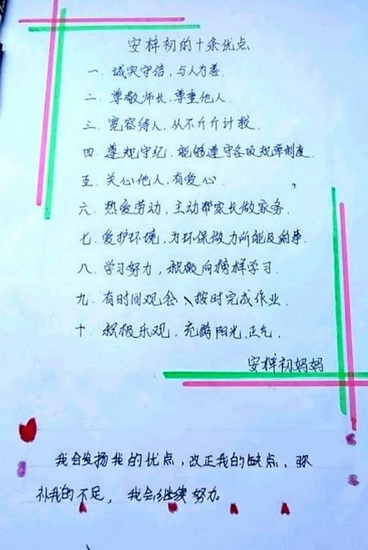 安梓初的十条优点
一. 诚实守信,与人为善.
二. 尊敬师长,尊重他人.
三. 宽容待人,从不斤斤计较.
四. 遵规守纪,能够遵守各项规章制度.
五. 关心他人,有爱心.
六. 热爱劳动,主动帮家长做家务.
七. 爱护环境,为环保做力所能及的事.
八. 学习努力,积极向榜样学习.
九. 有时间观念、按时完成作业.
十. 积极乐观,充满阳光、正气.
安梓初妈妈
我会发扬我的优点,改正我的缺点,弥
补我的不足,我会继续努力.